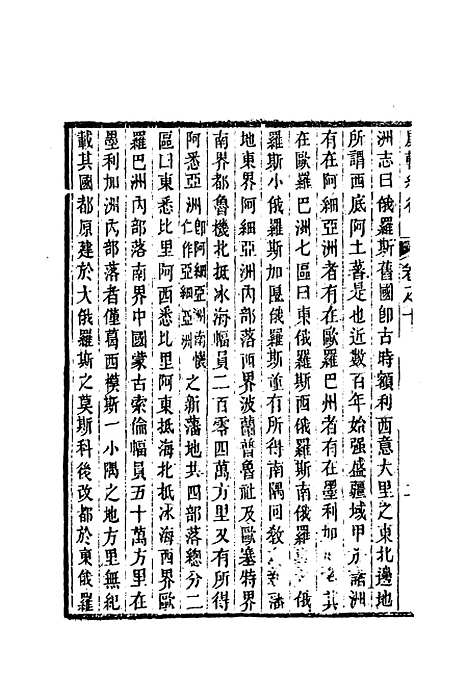 卷之十
洲志曰俄羅斯舊國卽古時額利西意大里之東北邊地
所謂西底阿土著是也近數百年始强盛疆域甲於諸洲
有在阿細亞洲者有在歐羅巴州者有在墨利加洲者其
在歐羅巴洲七區曰東俄羅斯西俄羅斯南俄羅斯大俄
羅斯小俄羅斯加厦俄羅斯並有所得南隅回敎之新藩
地東界阿細亞洲內部落西界波蘭普魯社及歐塞特界
南界都魯機北抵冰海幅員二百零四萬方里又有所得
阿悉亞洲卽阿細亞洲南懷仁作亞細亞洲之新藩地共四部落總分二
區曰東悉比里阿西悉比里阿東抵海北抵冰海西界歐
羅巴洲內部落南界中國蒙古索倫幅員五十萬方里在
墨利加洲內部落者僅葛西模斯一小隅之地方里無紀
載其國都原建於大俄羅斯之莫斯科後改都於東俄羅